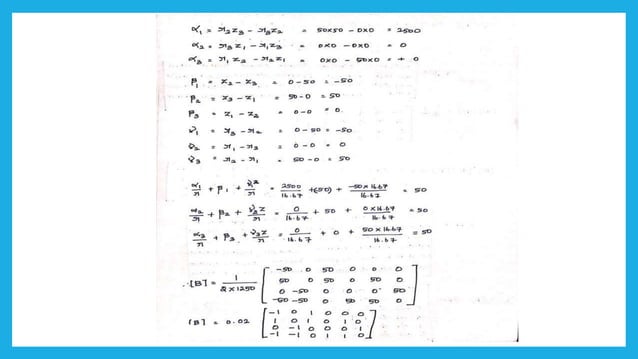 α₁ = r₂z₃ - r₃z₂ = 50x50 - 0x0 = 2500
α₂ = r₃z₁ - r₁z₃ = 0x0 - 0x0 = 0
α₃ = r₁z₂ - r₂z₁ = 0x0 - 50x0 = + 0
β₁ = z₂ - z₃ = 0-50 = -50
β₂ = z₃ - z₁ = 50-0 = 50
β₃ = z₁ - z₂ = 0-0 = 0
γ₁ = r₃ - r₂ = 0-50 = -50
γ₂ = r₁ - r₃ = 0-0 = 0
γ₃ = r₂ - r₁ = 50-0 = 50
α₁/r + β₁ + γ₁z/r = 2500/16.67 +(-50) + -50x16.67/16.67 = 50
α₂/r + β₂ + γ₂z/r = 0/16.67 + 50 + 0x16.67/16.67 = 50
α₃/r + β₃ + γ₃z/r = 0/16.67 + 0 + 50x16.67/16.67 = 50
∴ [B] = 1/2x1250 [ -50 0 50 0 0 0
50 0 50 0 50 0
0 -50 0 0 0 50
-50 -50 0 50 50 0 ]
[B] = 0.02 [ -1 0 1 0 0 0
1 0 1 0 1 0
0 -1 0 0 0 1
-1 -1 0 1 1 0 ]